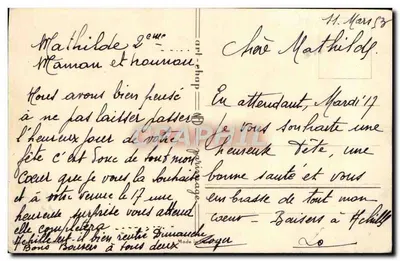 11 Mars 53
Mathilde 2eme .....
Maman et nounou.
Nous avons bien pensé
à ne pas laisser passer
l'heureux jour de votre
fête c'est donc de tout mon
Cœur que je vous la souhaite
et à votre venue le 17 une
heureuse surprise vous attend
elle complètera ........
Achille est-il bien rentré Dimanche
Bons Baisers à tous deux
Chère Mathilde,
En attendant, Mardi 17
Je vous souhaite une
heureuse Fête, une
bonne santé et vous
embrasse de tout mon
cœur - Baisers à Achille